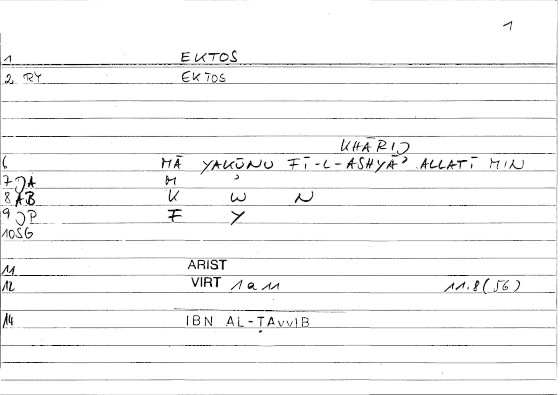 1
1 EKTOS
2 RY EKTOS
KHĀRIJ
6 MĀ YAKŪNU FĪ-L-ASHYĀʾ ALLATĪ MIN
7 JA M ʾ
8 AB K W N
9 JP F Y
10SG
11 ARIST
12 VIRT 1 a 11 11.8 (56)
14 IBN AL-ṬAvvIB